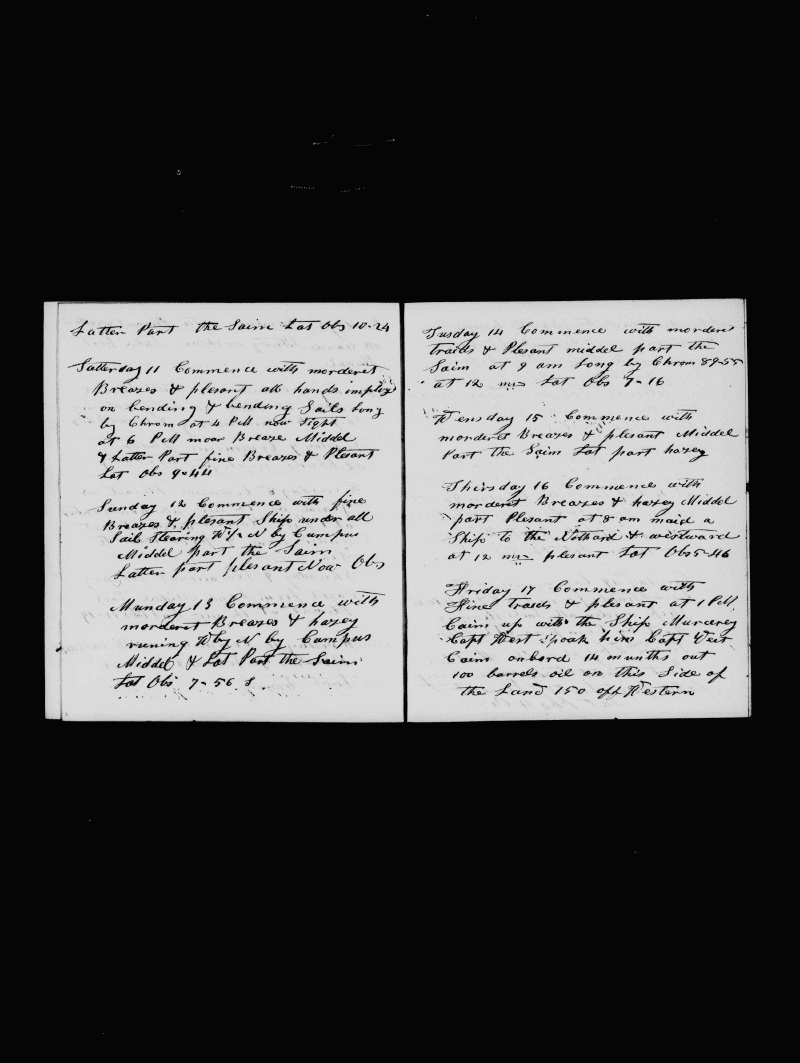 Latter Part the Saim Lat Obs 10-24
Satterday 11 Commence with morderet
Breazes & plesant all hands imploy
on bending & bending Sails Long
by Chrom at 4 PM now Sight
at 6 PM moar Breaze Middel
& Latter Part fine Breazes & Plesant
Lat Obs 9-44
Sunday 12 Commence with fine
Breazes & plesant Ship under all
Sail Stearing W½ N by Cumpus
Middel part the Saim
Latter part plesant Now Obs
Munday 13 Commence with
morderet Breazes & hazey
runing W by N by Cumpus
Middel & Lat Part the Saim
Lat Obs 7-56 S
Tusday 14 Commence with morderet
traids & Plesant middel part the
Saim at 9 am Long by Chrom 89-55
at 12 Lat Obs 7-16
Wensday 15 Commence with
morderet Breazes & plesant Middel
Part the Saim Lat part hazey
Thirsday 16 Commence with
morderet Breazes & hazey Middel
part Plesant at 8 am maid a
Ship to the Nothard & westward
at 12 plesant Lat Obs 5-46
Friday 17 Commence with
Fine traids & plesant at 1 PM
Caim up with the Ship Murcerey
Capt West Spoak him Capt West
Caim onbord 14 munths out
100 barrels oil on this Side of
the Land 150 off Western